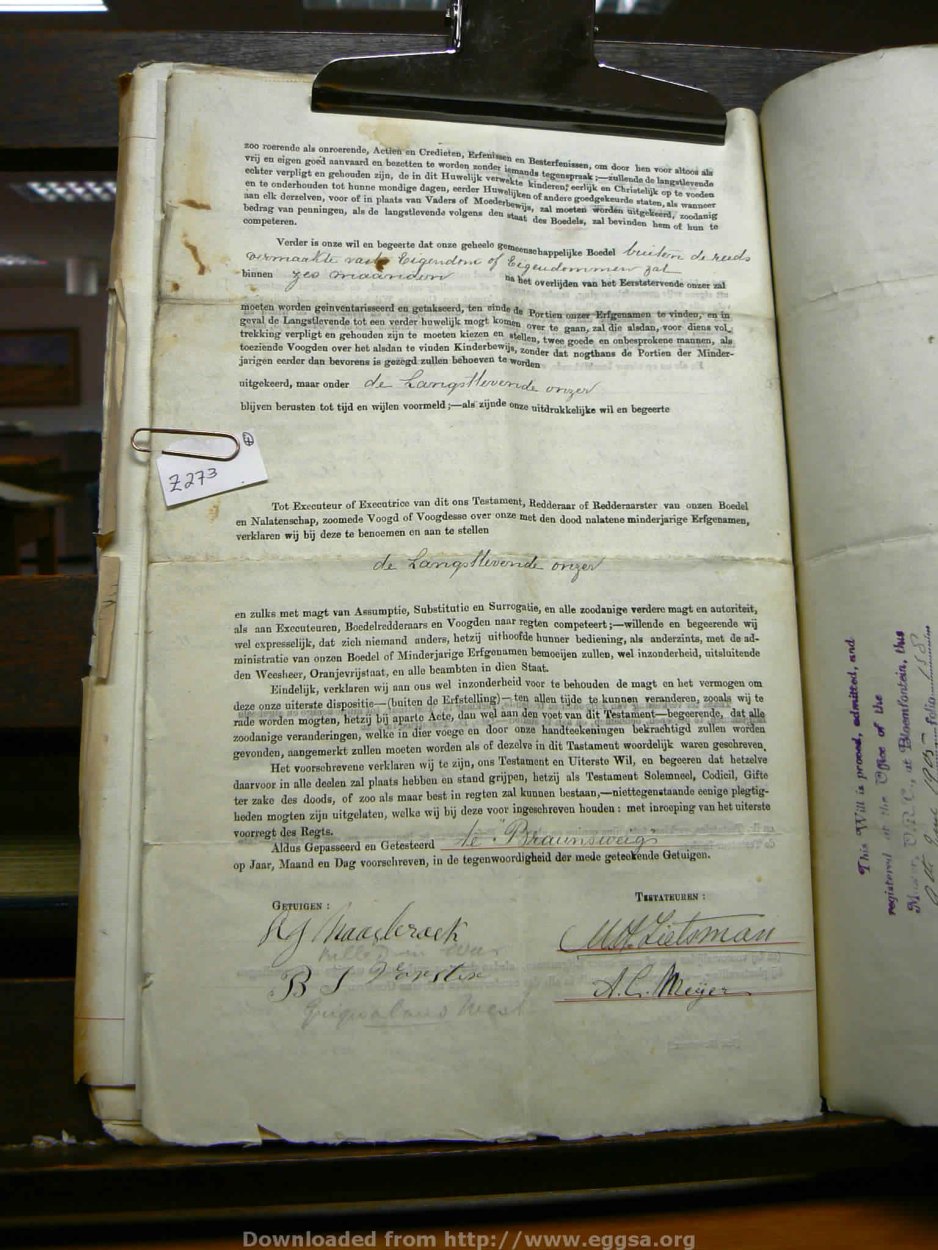 zoo roerende als onroerende, Actien en Credieten, Erfenissen en Besterfenissen, om door hen voor altoos als
vrij en eigen goed aanvaard en bezetten te worden zonder iemands tegenspraak;—zullende de langstlevende
echter verpligt en gehouden zijn, de in dit Huwelijk verwekte kinderen, eerlijk en Christelijk op te voeden
en te onderhouden tot hunne mondige dagen, eerder Huwelijken of andere goedgekeurde staten, als wanneer
aan elk derzelven, voor of in plaats van Vaders of Moederbewijs, zal moeten worden uitgekeerd, zoodanig
bedrag van penningen, als de langstlevende volgens den staat des Boedels, zal bevinden hem of hun te
competeren.
Verder is onze wil en begeerte dat onze geheele gemeenschappelijke Boedel buiten de reeds
vermaakte vaste Eigendom of Eigendommen zal
binnen zes maanden na het overlijden van het Eerststervende onzer zal
moeten worden geinventarisseerd en getakseerd, ten einde de Portien onzer Erfgenamen te vinden, en in
geval de Langstlevende tot een verder huwelijk mogt komen over te gaan, zal die alsdan, voor diens vol-
trekking verpligt en gehouden zijn te moeten kiezen en stellen, twee goede en onbesprokene mannen, als
toeziende Voogden over het alsdan te vinden Kinderbewijs, zonder dat nogthans de Portien der Minder-
jarigen eerder dan bevorens is gezegd zullen behoeven te worden
uitgekeerd, maar onder de Langstlevende onzer
blijven berusten tot tijd en wijlen voormeld;—als zijnde onze uitdrukkelijke wil en begeerte
Z273
Tot Executeur of Executrice van dit ons Testament, Redderaar of Redderaarster van onzen Boedel
en Nalatenschap, zoomede Voogd of Voogdesse over onze met den dood nalatene minderjarige Erfgenamen,
verklaren wij bij deze te benoemen en aan te stellen
de Langstlevende onzer
en zulks met magt van Assumptie, Substitutie en Surrogatie, en alle zoodanige verdere magt en autoriteit,
als aan Executeuren, Boedelredderaars en Voogden naar regten competeert;—willende en begeerende wij
wel expresselijk, dat zich niemand anders, hetzij uithoofde hunner bediening, als anderzints, met de ad-
ministratie van onzen Boedel of Minderjarige Erfgenamen bemoeijen zullen, wel inzonderheid, uitsluitende
den Weesheer, Oranjevrijstaat, en alle beambten in dien Staat.
Eindelijk, verklaren wij aan ons wel inzonderheid voor te behouden de magt en het vermogen om
deze onze uiterste dispositie—(buiten de Erfstelling)—ten allen tijde te kunnen veranderen, zooals wij te
rade worden mogten, hetzij bij aparte Acte, dan wel aan den voet van dit Testament—begeerende, dat alle
zoodanige veranderingen, welke in dier voege en door onze handteekeningen bekrachtigd zullen worden
gevonden, aangemerkt zullen moeten worden als of dezelve in dit Tastament woordelijk waren geschreven.
Het voorschrevene verklaren wij te zijn, ons Testament en Uiterste Wil, en begeeren dat hetzelve
daarvoor in alle deelen zal plaats hebben en stand grijpen, hetzij als Testament Solemneel, Codicil, Gifte
ter zake des doods, of zoo als maar best in regten zal kunnen bestaan,—niettegenstaande eenige plegtig-
heden mogten zijn uitgelaten, welke wij bij deze voor ingeschreven houden: met inroeping van het uiterste
voorregt des Regts.
Aldus Gepasseerd en Getesteerd te Braunsweig
op Jaar, Maand en Dag voorschreven, in de tegenwoordigheid der mede geteekende Getuigen.
GETUIGEN:
TESTATEUREN:
killed in War
B J
Griqualand West
A. C. Meijer
This Will is proved, admitted, and
registered at the Office of the
Master, O.R.C., at Bloemfontein, this
1905 folio
Downloaded from http://www.eggsa.org